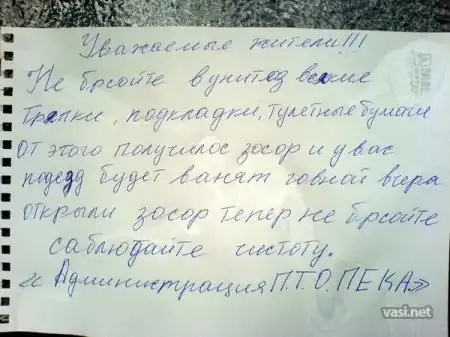 Уважаемые жители!!!
Не брсойте в унитоз всякие
тряпки, подкладки, тулетные бумаги
от этого получилос зосор и у вас
подезд будет ванят говной вчера
открыли зосор тепер не брсойте
саблюдайте чистоту.
«Администрация П.Т.О. ПЕКА»
vasi.net